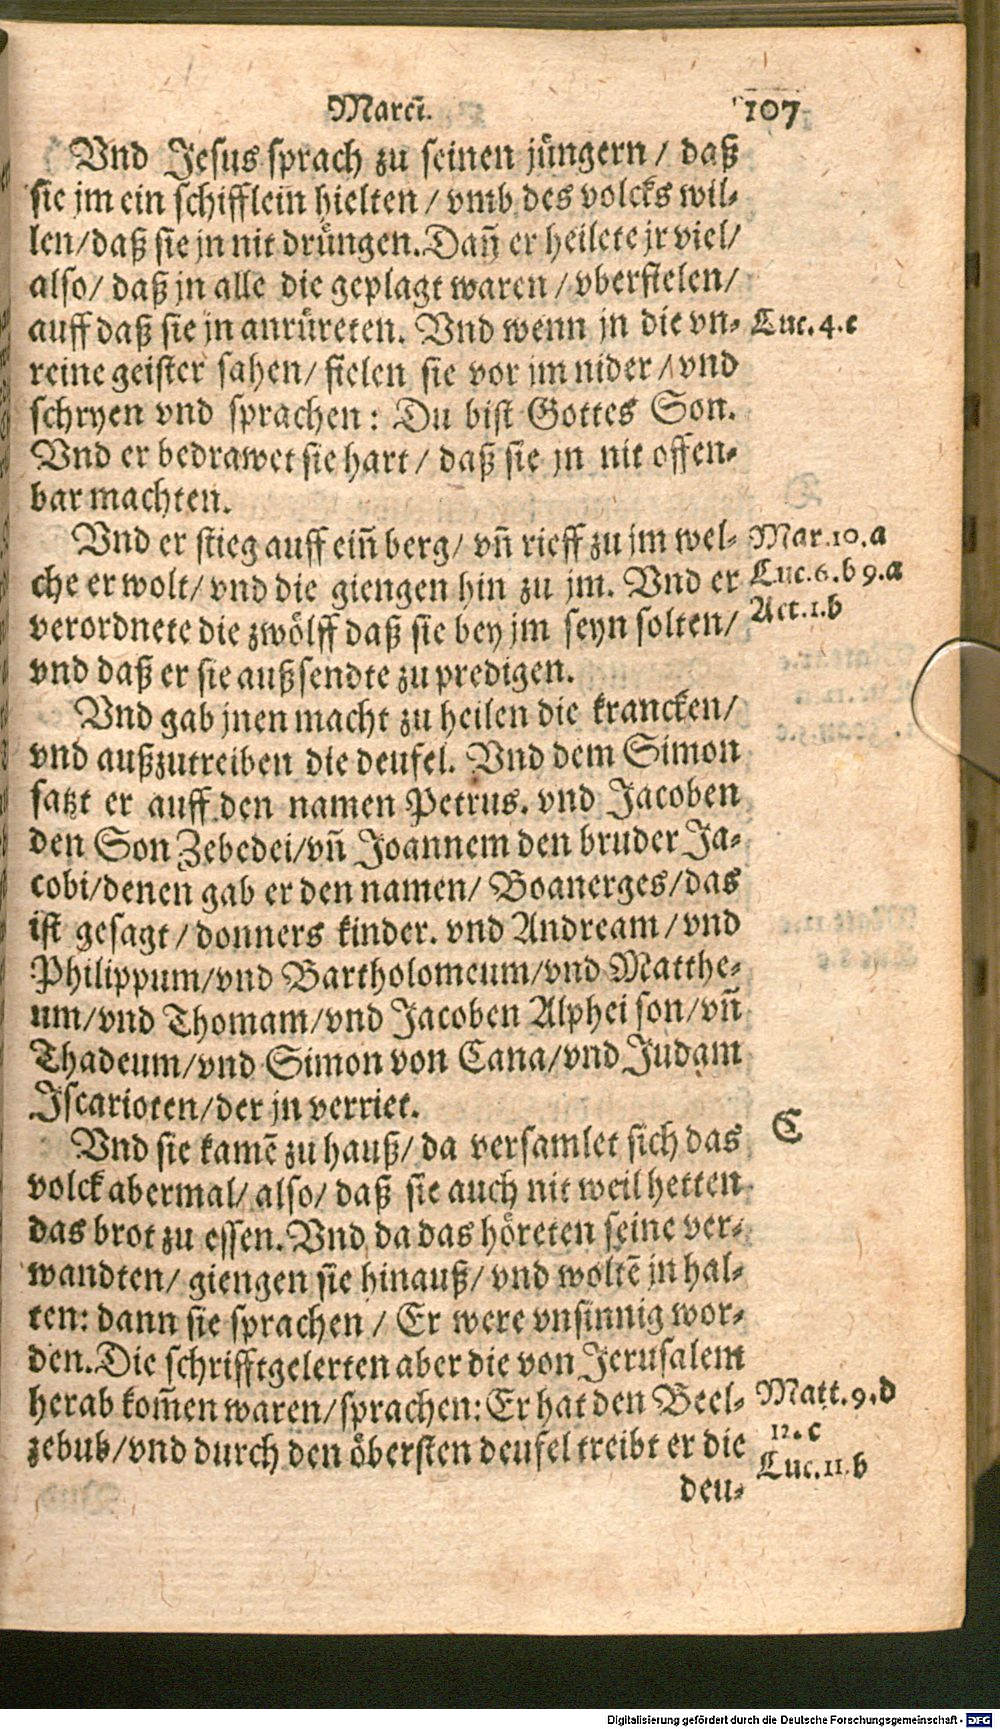 Marci.
107
Vnd Jesus sprach zu seinen jüngern / daß
sie jm ein schifflein hielten / vmb des volcks wil⸗
len/daß sie jn nit drüngen. Dañ er heilete jr viel/
also/ daß jn alle die geplagt waren / vberfielen/
auff daß sie jn anrüreten. Vnd wenn jn die vn⸗
Luc. 4. c
reine geister sahen/ fielen sie vor jm nider / vnd
schryen vnd sprachen: Du bist Gottes Son.
Vnd er bedrawet sie hart / daß sie jn nit offen⸗
bar machten.
Vnd er stieg auff eiñ berg/ vñ rieff zu jm wel⸗
Mar. 10. a
che er wolt/ vnd die giengen hin zu jm. Vnd er
Luc. 6. b 9. a
verordnete die zwölff daß sie bey jm seyn solten/
Act. 1. b
vnd daß er sie außsendte zu predigen.
Vnd gab jnen macht zu heilen die krancken/
vnd außzutreiben die deufel. Vnd dem Simon
satzt er auff den namen Petrus. vnd Jacoben
den Son Zebedei/vñ Joannem den bruder Ja⸗
cobi/denen gab er den namen/ Boanerges/das
ist gesagt / donners kinder. vnd Andream / vnd
Philippum/vnd Bartholomeum/vnd Matthe⸗
um/vnd Thomam/vnd Jacoben Alphei son/vñ
Thadeum/vnd Simon von Cana/vnd Judam
Jscarioten/der jn verriet.
Vnd sie kamē zu hauß/ da versamlet sich das
C
volck abermal/ also/ daß sie auch nit weil hetten
das brot zu essen. Vnd da das höreten seine ver⸗
wandten/ giengen sie hinauß/ vnd woltē jn hal⸗
ten: dann sie sprachen / Er were vnsinnig wor⸗
den. Die schrifftgelerten aber die von Jerusalem
herab kom̃en waren/sprachen: Er hat den Beel⸗
Matt. 9. d
12. c
zebub/vnd durch den öbersten deufel treibt er die
Luc. 11. b
deu⸗
Digitalisierung gefördert durch die Deutsche Forschungsgemeinschaft - DFG